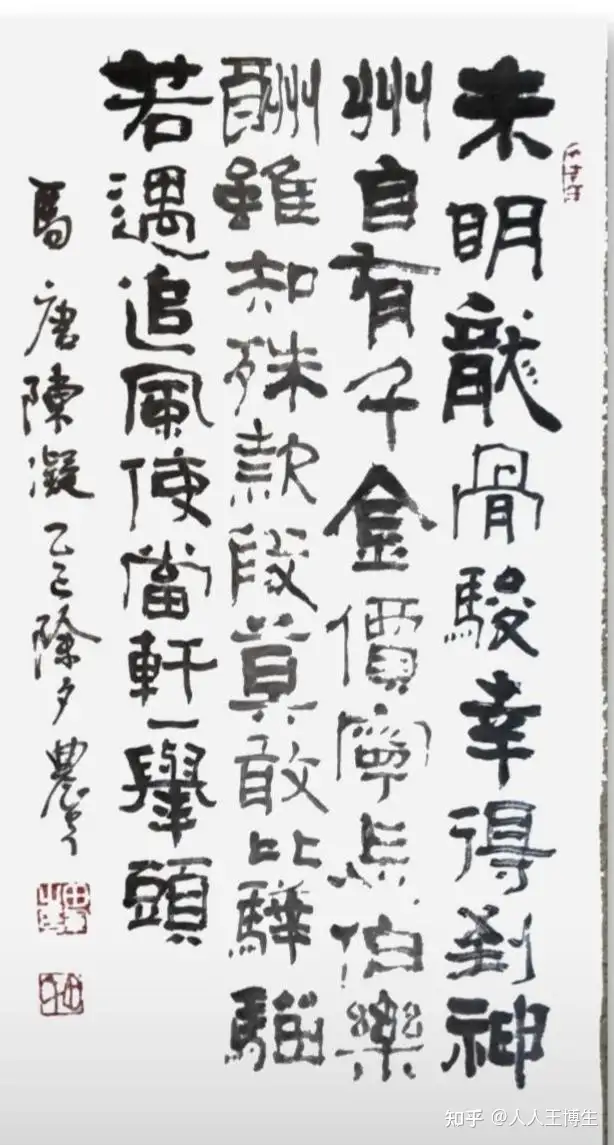 未明龍骨駿幸得到神
州自有千金價寧忘伯樂
酬雖知殊款段莫敢比驊騮
若遇追風便當軒一舉頭
馬 唐 陳凝 乙巳除夕農
知乎 @人人王博生